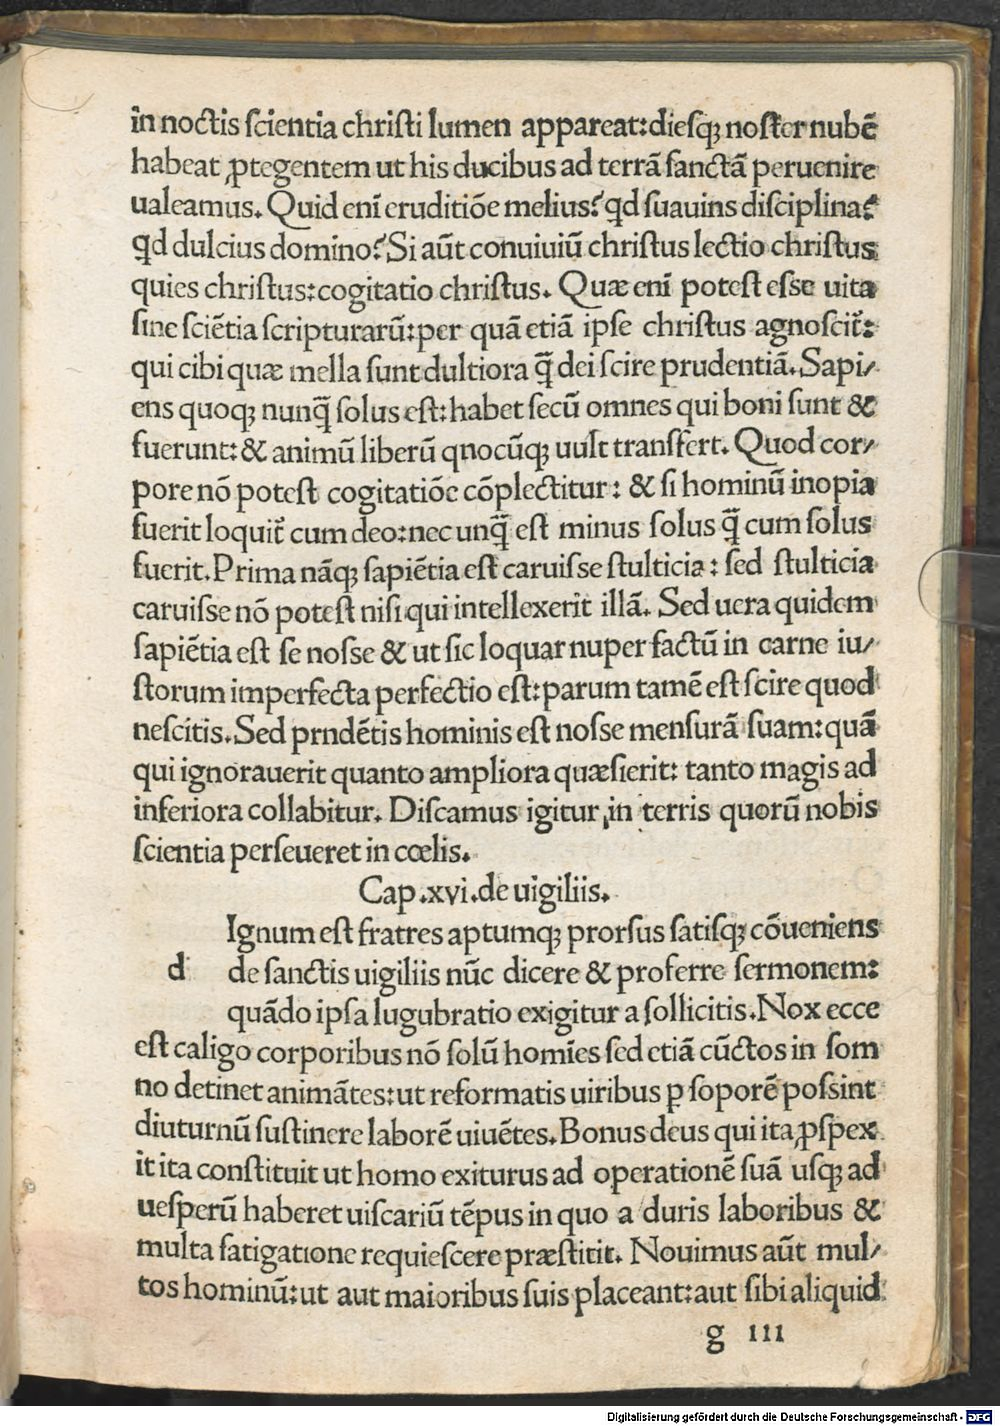 in noctis ſcientia chriſti lumen appareat:dieſqꝫ noſter nubē
habeat ꝓtegentem ut his ducibus ad terrā ſanctā peruenire
ualeamus. Quid eni̅ eruditiōe melius? qd̄ ſuauins diſciplina?
qd̄ dulcius domino? Si aūt conuiuiū chriſtus lectio chriſtus
quies chriſtus:cogitatio chriſtus. Quæ eni̅ poteſt eſſe uita
ſine ſciētia ſcripturarū:per quā etiā ipſe chriſtus agnoſcit᷑:
qui cibi quæ mella ſunt dultiora q̄̃ dei ſcire prudentiā. Sapi/
ens quoqꝫ nunq̄̃ ſolus eſt: habet ſecū omnes qui boni ſunt &
fuerunt: & animū liberū qnocūqꝫ uult tranſfert. Quod cor/
pore nō poteſt cogitatiōe cōplectitur: & ſi hominū inopia
fuerit loquit᷑ cum deo:nec unq̄̃ eſt minus ſolus q̄̃ cum ſolus
fuerit. Prima nāqꝫ ſapiētia eſt caruiſſe ſtulticia: ſed ſtulticia
caruiſſe nō poteſt niſi qui intellexerit illā. Sed uera quidem
ſapiētia eſt ſe noſſe & ut ſic loquar nuper factū in carne iu/
ſtorum imperfecta perfectio eſt:parum tamē eſt ſcire quod
neſcitis. Sed prndētis hominis eſt noſſe menſurā ſuam:quā
qui ignorauerit quanto ampliora quæſierit: tanto magis ad
inferiora collabitur. Diſcamus igitur in terris quorū nobis
ſcientia perſeueret in cœlis.
Cap.xvi.de uigiliis.
Ignum eſt fratres aptumqꝫ prorſus ſatiſqꝫ cōueniens
d de ſanctis uigiliis nūc dicere & proferre ſermonem:
quādo ipſa lugubratio exigitur a ſollicitis. Nox ecce
eſt caligo corporibus nō ſolū homi̅es ſed etiā cūctos in ſom
no detinet animātes:ut reformatis uiribus ꝑ ſoporē poſſint
diuturnū ſuſtinere laborē uiuētes. Bonus deus qui ita ꝓſpex
it ita conſtituit ut homo exiturus ad operationē ſuā uſqꝫ ad
ueſperū haberet uiſcariū tēpus in quo a duris laboribus &
multa fatigatione requieſcere præſtitit. Nouimus aūt mul/
tos hominū:ut aut maioribus ſuis placeant:aut ſibi aliquid
g iii
Digitalisierung gefördert durch die Deutsche Forschungsgemeinschaft - DFG